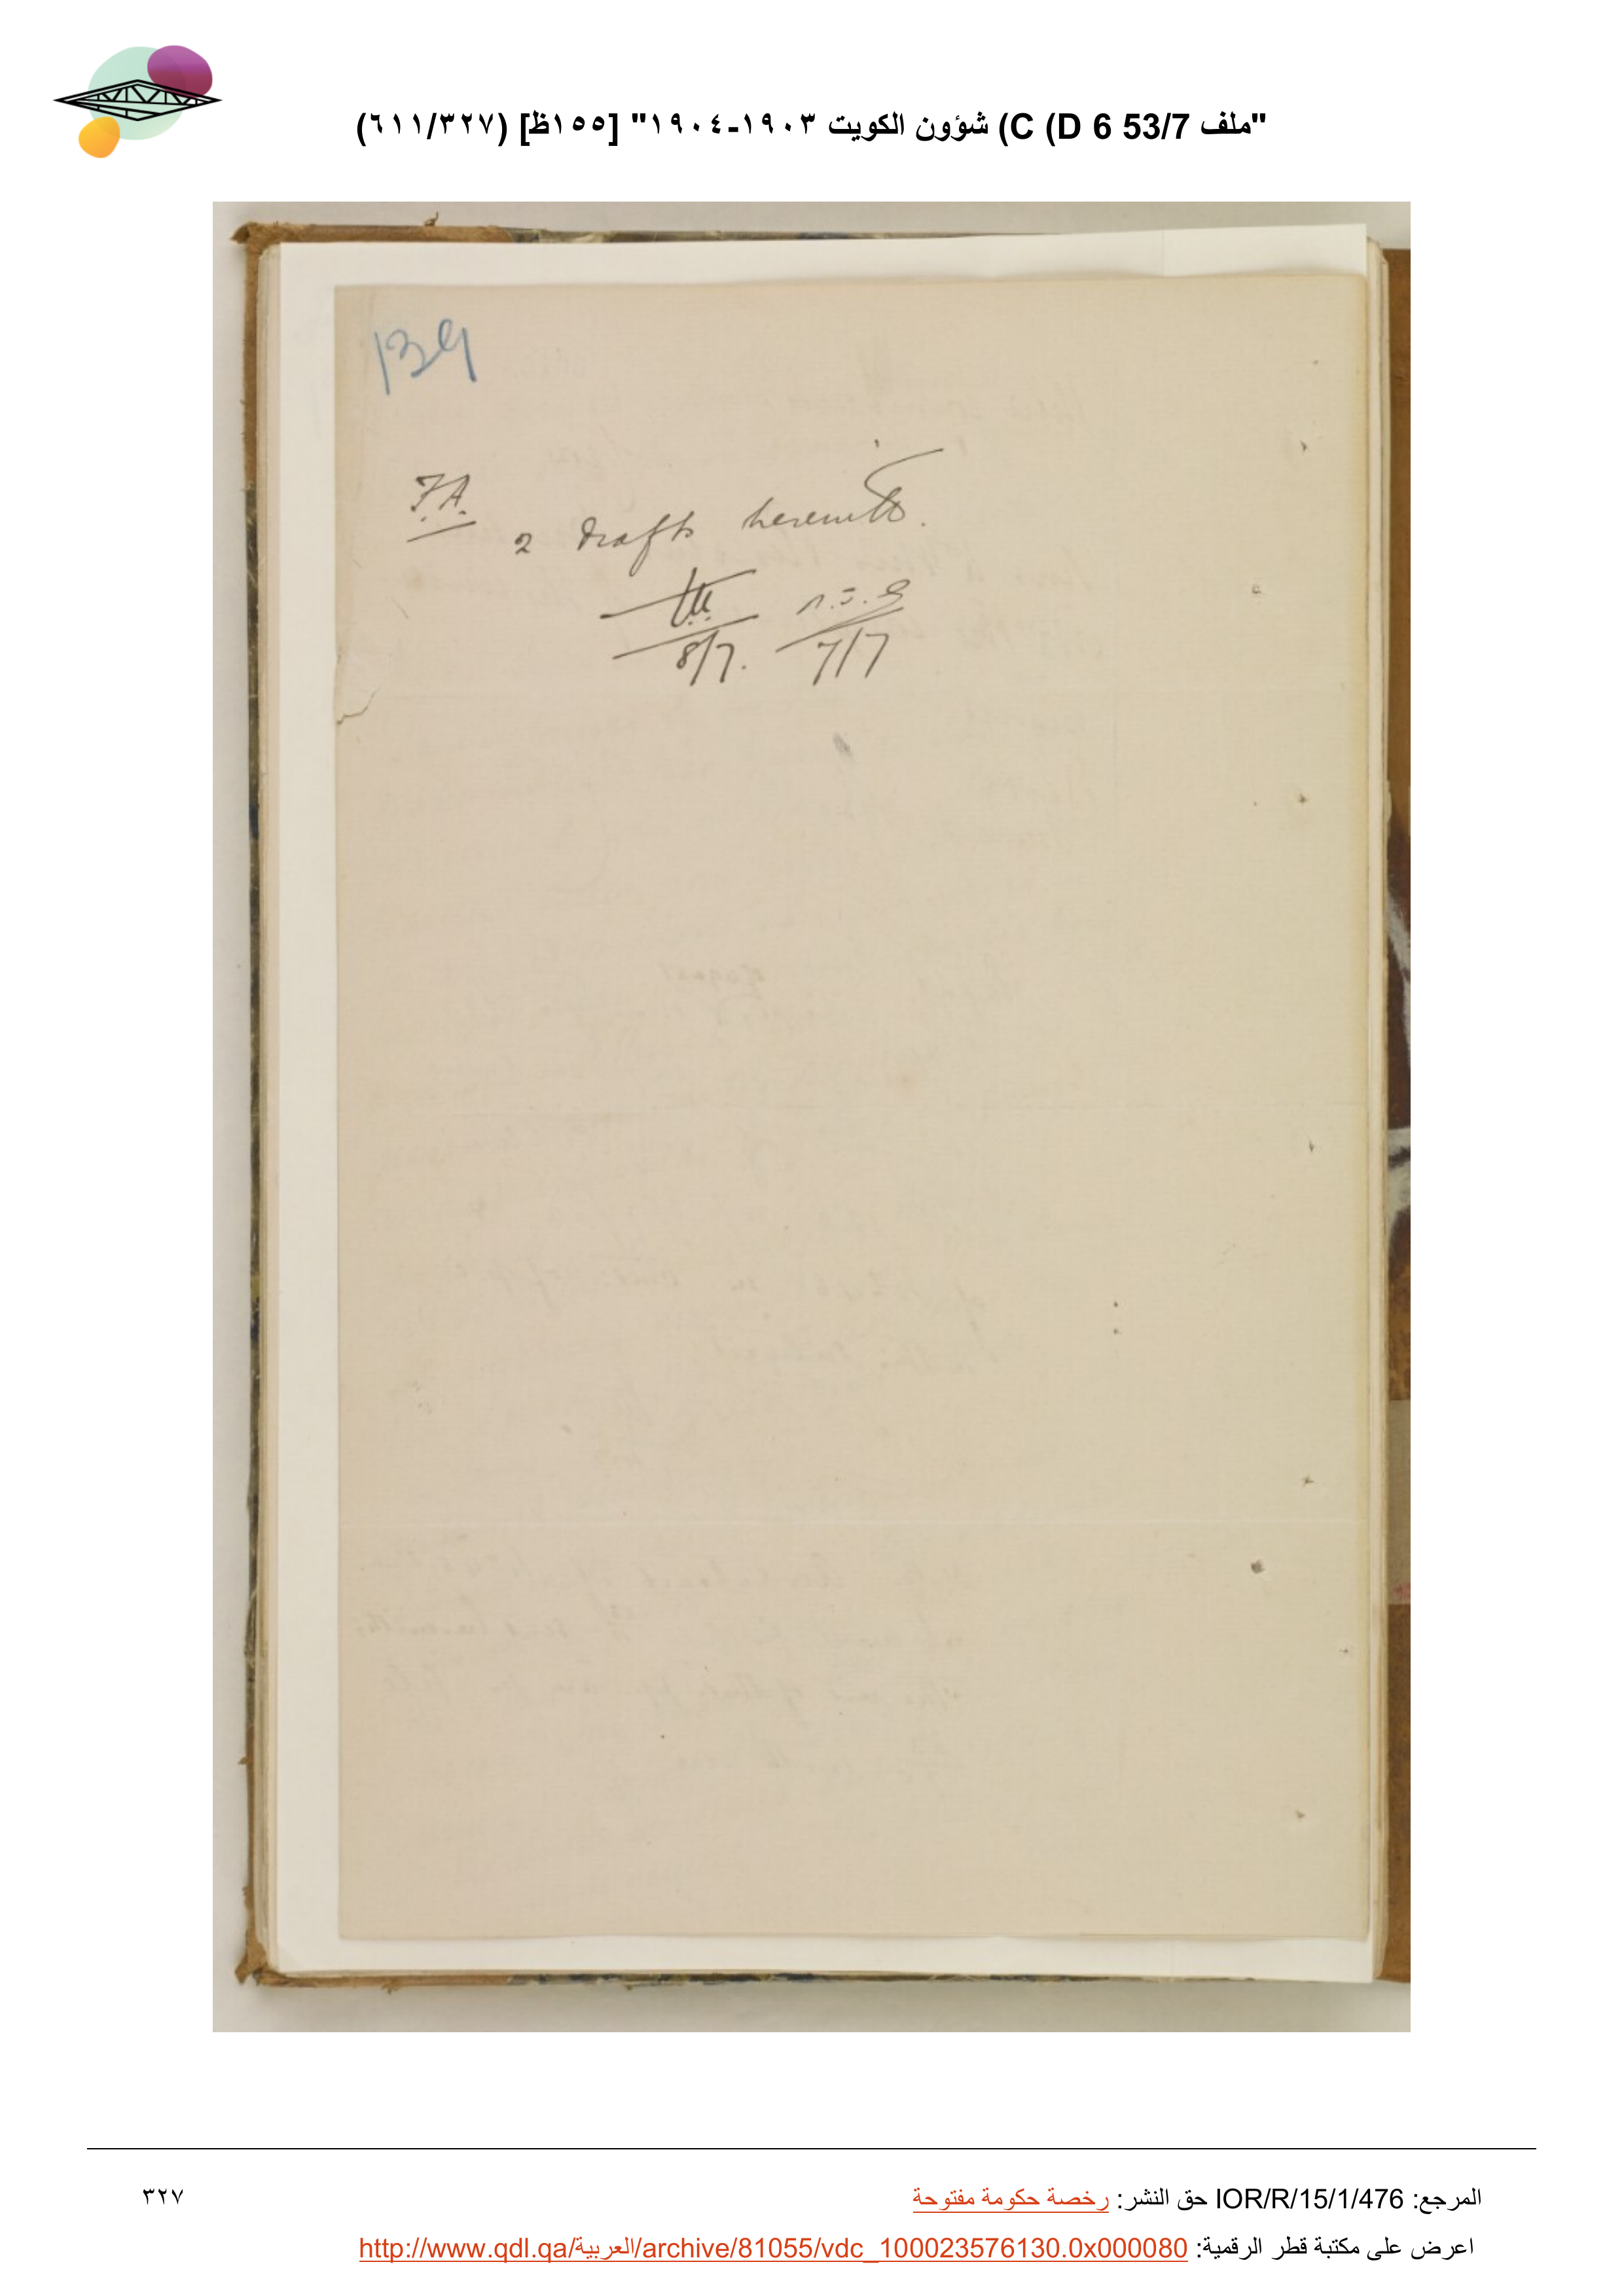 "ملف 53/7 D 6) C) شؤون الكويت ١٩٠٣-١٩٠٤" [١٥٥ظ] (٦١١/٣٢٧)
139
F.A.
2 drafts herewith.
8/7. 7/7
المرجع: IOR/R/15/1/476 حق النشر: رخصة حكومة مفتوحة
٣٢٧
اعرض على مكتبة قطر الرقمية: http://www.qdl.qa/العربية/archive/81055/vdc_100023576130.0x000080